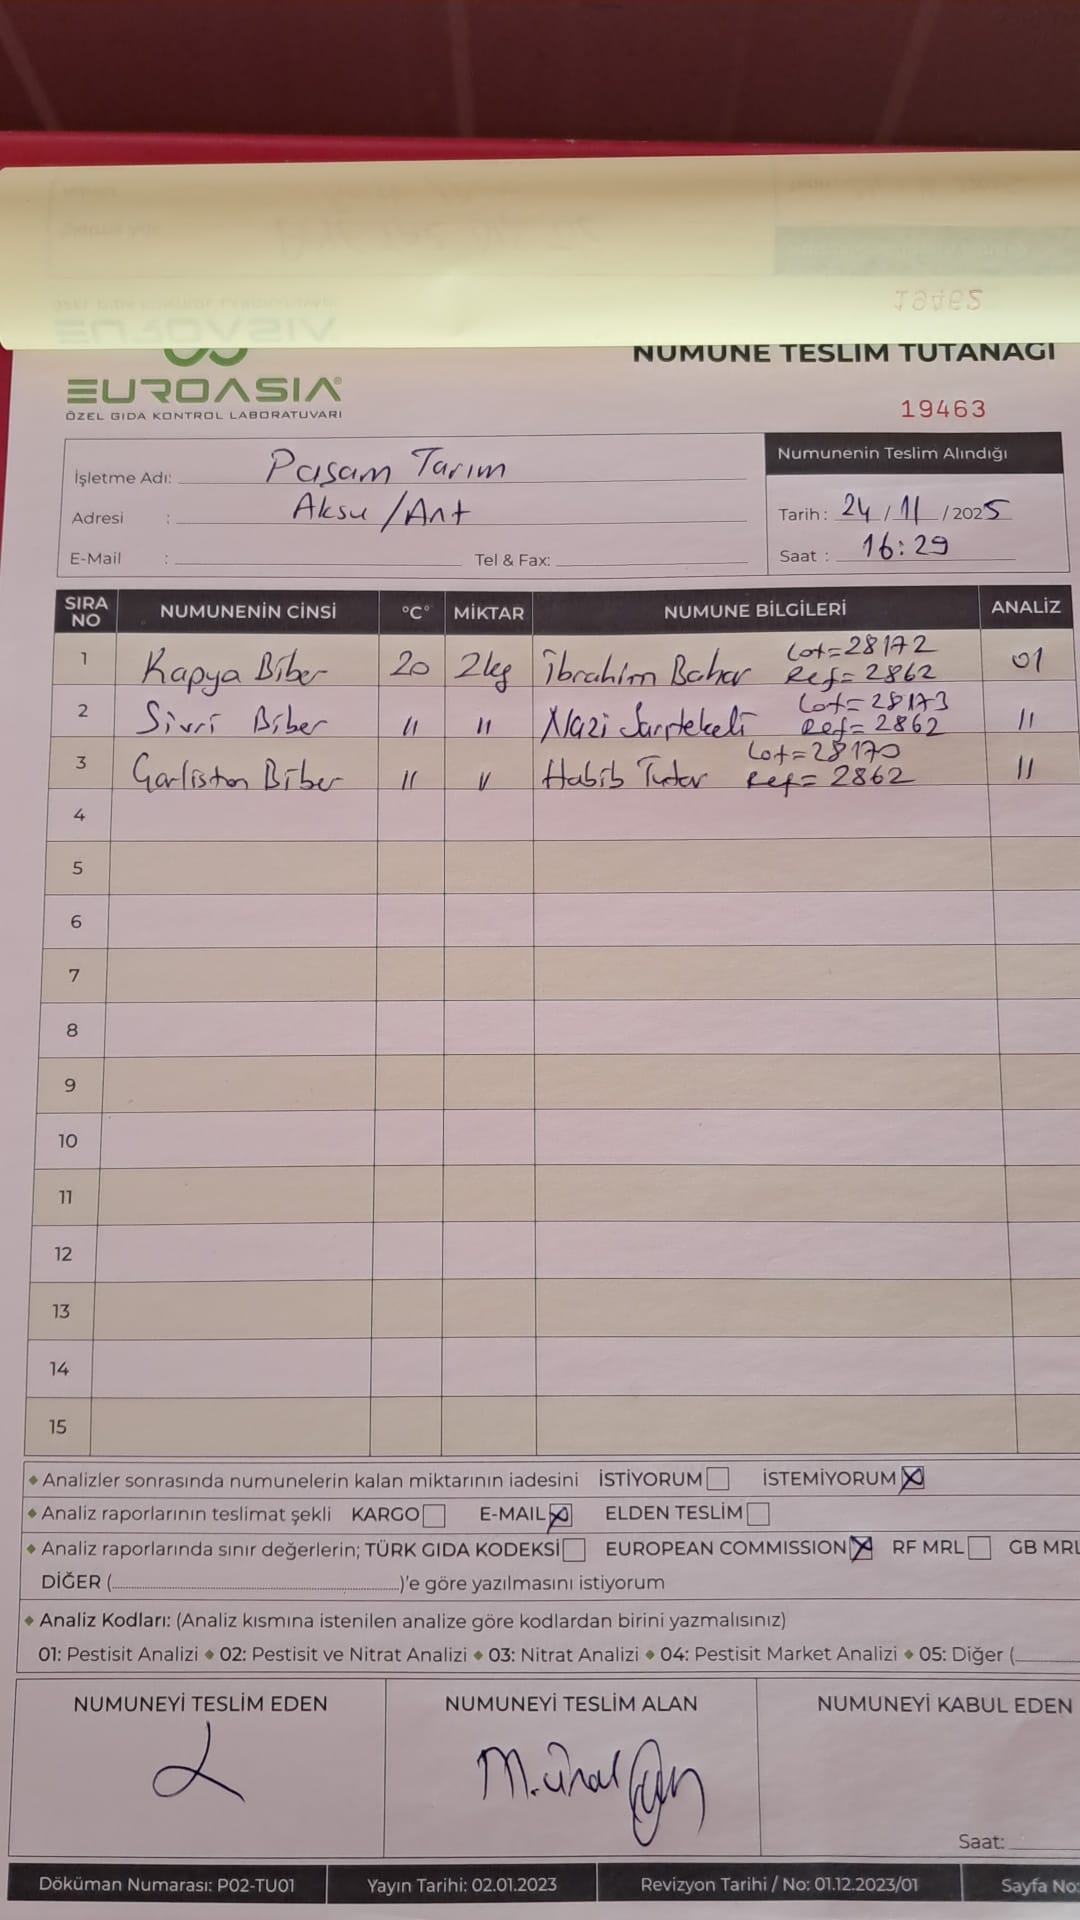 19462
NUMUNE TESLİM TUTANAĞI
EUROASIA®
ÖZEL GIDA KONTROL LABORATUVARI
19463
İşletme Adı: Paşam Tarım
Adresi : Aksu/Ant
E-Mail : Tel & Fax:
Numunenin Teslim Alındığı
Tarih: 24/11/2025
Saat : 16:29
SIRA NO NUMUNENİN CİNSİ °C° MİKTAR NUMUNE BİLGİLERİ ANALİZ
1 Kapya Biber 20 2kg İbrahim Bahar Lot=28172 Ref=2862 01
2 Sivri Biber " " Nazi Lot=28173 Ref=2862 "
3 Garliston Biber " " Habib Tutar Lot=28170 Ref=2862 "
4
5
6
7
8
9
10
11
12
13
14
15
Analizler sonrasında numunelerin kalan miktarının iadesini İSTİYORUM İSTEMİYORUM
Analiz raporlarının teslimat şekli KARGO E-MAIL ELDEN TESLİM
Analiz raporlarında sınır değerlerin; TÜRK GIDA KODEKSİ EUROPEAN COMMISSION RF MRL GB MRL
DİĞER (............)'e göre yazılmasını istiyorum
Analiz Kodları: (Analiz kısmına istenilen analize göre kodlardan birini yazmalısınız)
01: Pestisit Analizi 02: Pestisit ve Nitrat Analizi 03: Nitrat Analizi 04: Pestisit Market Analizi 05: Diğer (......
NUMUNEYİ TESLİM EDEN NUMUNEYİ TESLİM ALAN NUMUNEYİ KABUL EDEN
M. Ünal
Saat:
Döküman Numarası: P02-TU01 Yayın Tarihi: 02.01.2023 Revizyon Tarihi / No: 01.12.2023/01 Sayfa No: